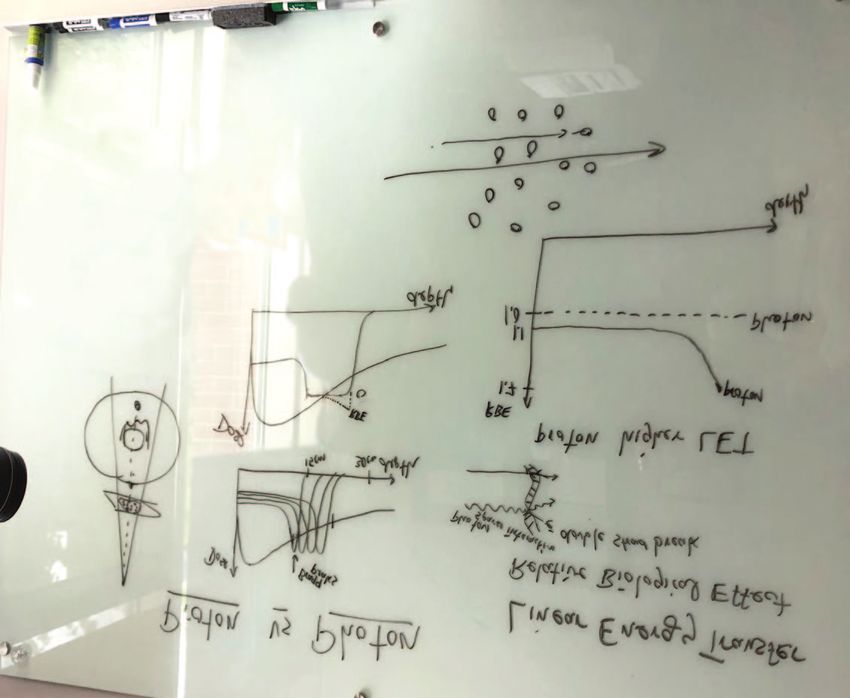 Proton vs Photon
Dose
Bragg
Peaks
15cm
depth
Dose
RBE
depth
Linear Energy Transfer
Relative Biological Effect
double strand break
proton higher LET
RBE
1.7
proton
1.1
1.0
photon
depth